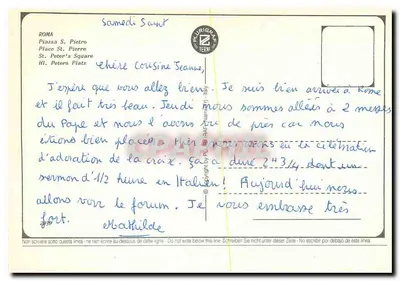 Samedi Saint
ROMA
Piazza S. Pietro
Place St. Pierre
St. Peter's Square
Hl. Peters Platz
PLURIGRAF
TERNI
Chère Cousine Jeanne,
J'espère que vous allez bien. Je suis bien arrivée à Rome
et il fait très beau. Jeudi nous sommes allées à 2 messes
du Pape et nous l'avons vu de près car nous
étions bien placées. Hier nous avons vu la célébration
d'adoration de la croix. Ça a duré 2H3/4 dont un
sermon d'1/2 heure en Italien! Aujourd'hui nous
allons voir le forum. Je vous embrasse très
fort.
Mathilde
Non scrivere sotto questa linea - Ne rien écrire au-dessous de cette ligne - Do not write below this line - Schreiben Sie nicht unter dieser Zeile - No escribir por debajo de esta linea